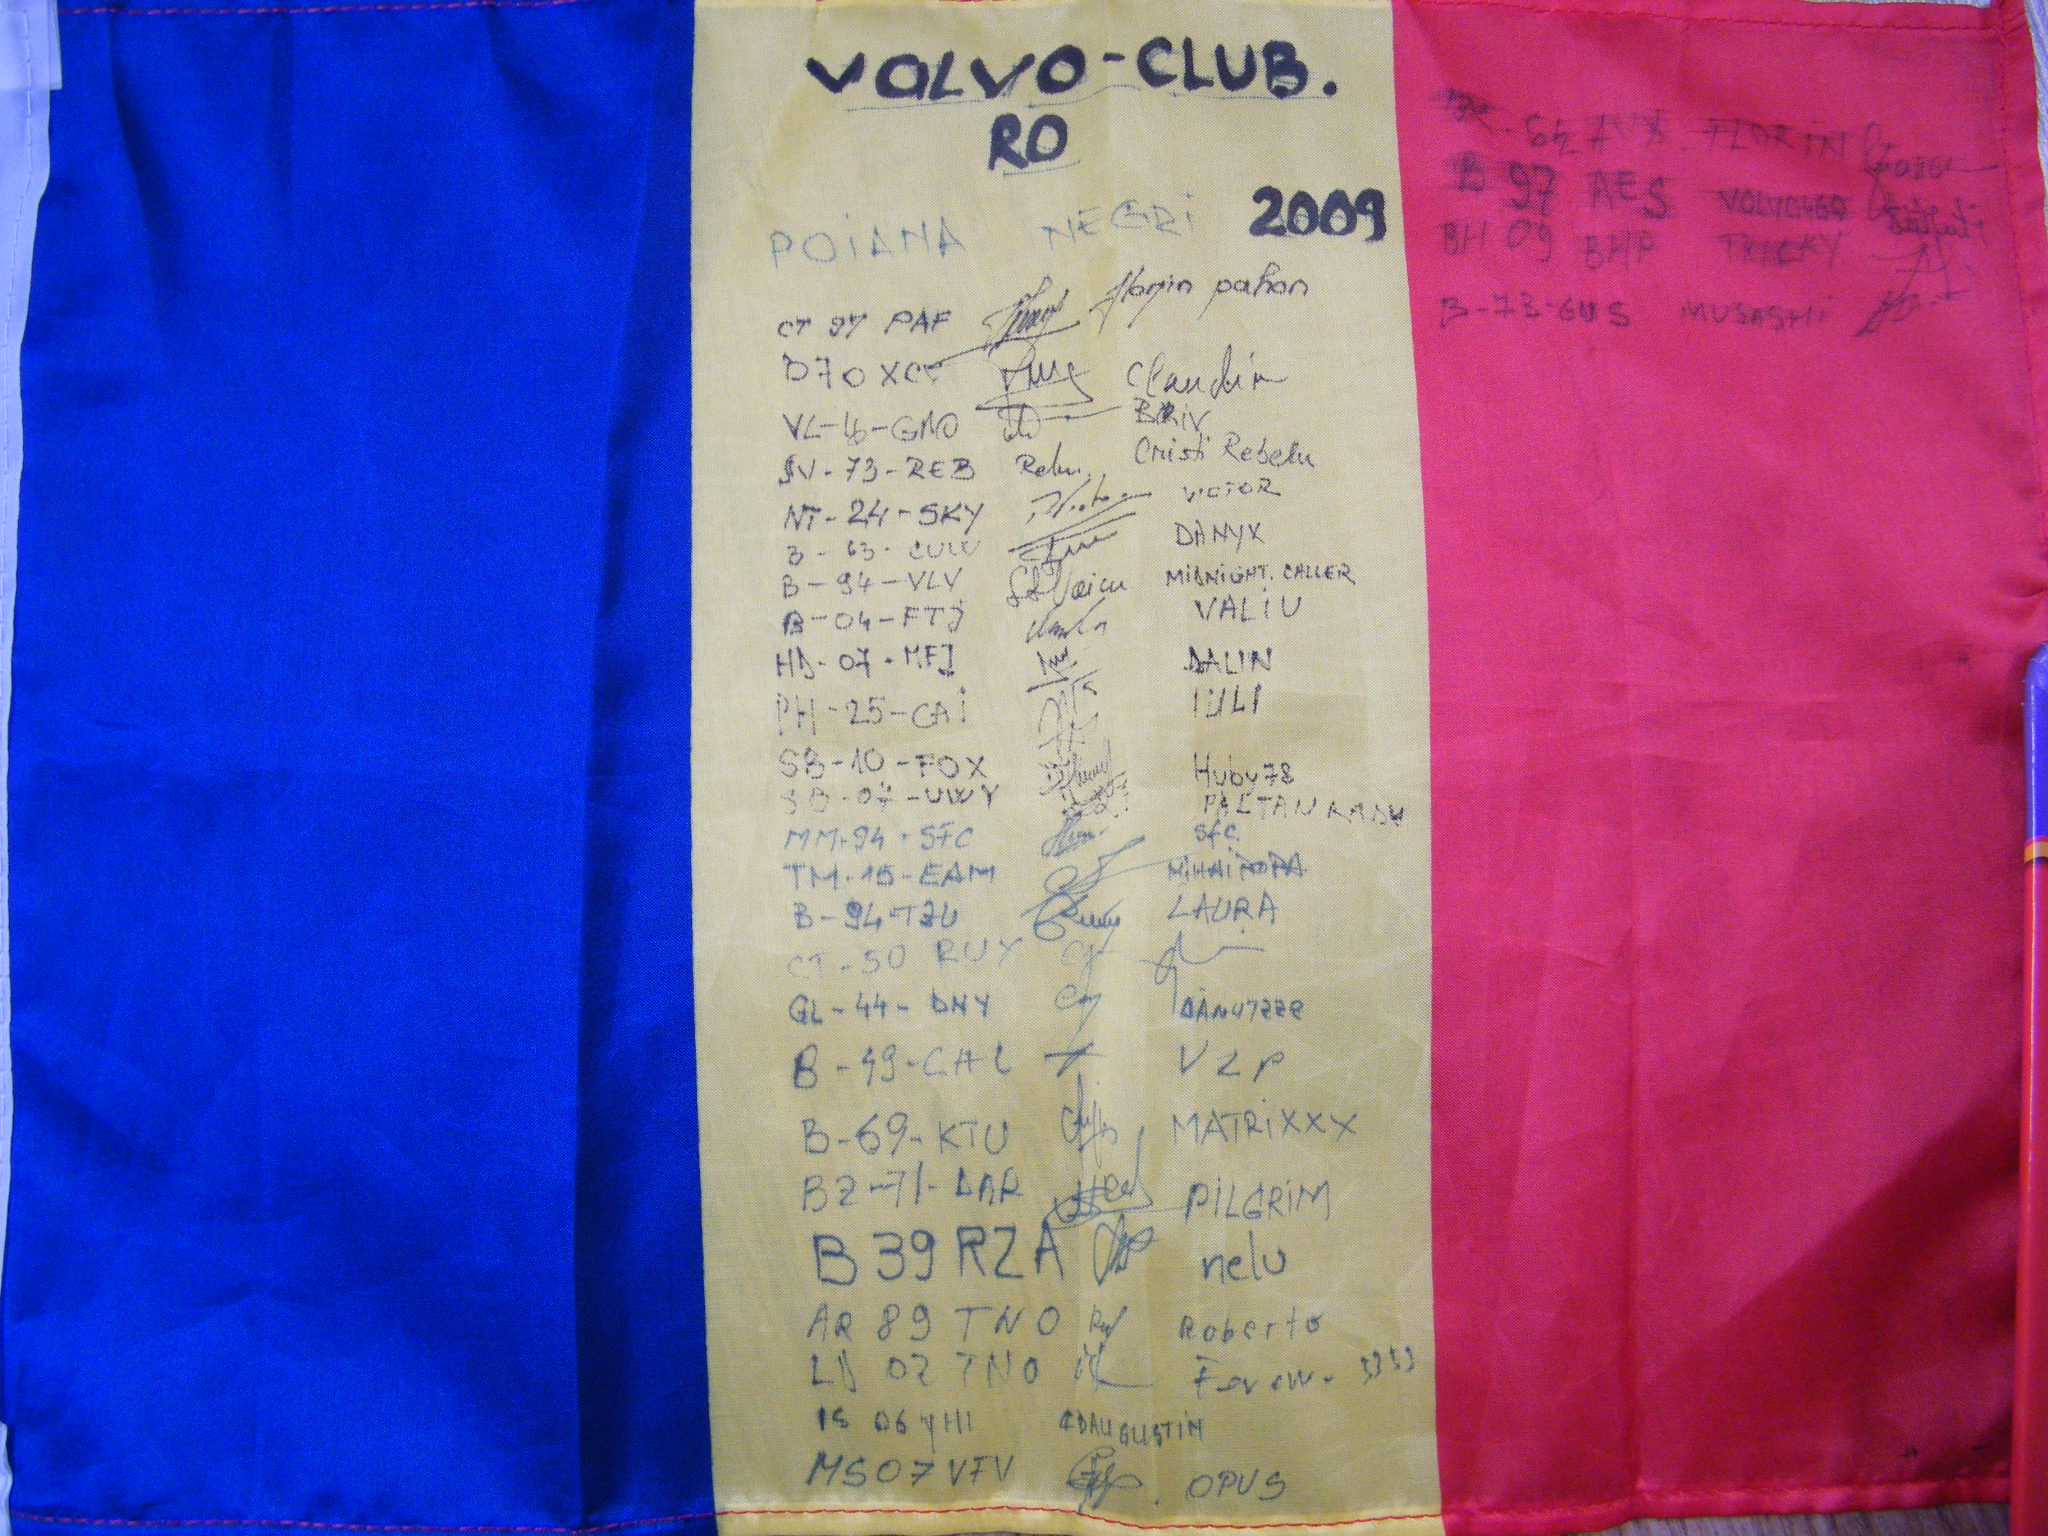 VOLVO-CLUB.
RO
POIANA NEGRI 2009
CT 97 PAF florin pahon
B 70 XCC Claudiu
VL-16-GMO BRIV
SV-73-REB Rebu Cristi Rebelu
NT-24-SKY VICTOR
B-63-CUW DANYX
B-94-VLV MIDNIGHT.CALLER
B-04-FTJ VALIU
HD-07-MFJ DALIN
PH-25-CAI IULI
SB-10-FOX Huby78
SB-07-UWY PALTAN RADU
MM-94-SFC SFC
TM-15-EAM MIHAI POPA
B-94-TZU LAURA
CT-50 RUX
GL-44-DNY DANUTZZZ
B-49-CAL VLP
B-69-KTU MATRIXXX
BZ-71-DAR PILGRIM
B 39 RZA nelu
AR 89 TNO Roberto
02 TNO
IS 06 YHI CDAUGUSTIN
MS 07 VFV OPUS
FLORIN
B 97 AES VOLVO460
BH 09 BHP TRICKY
B-73-GUS MUSASHI